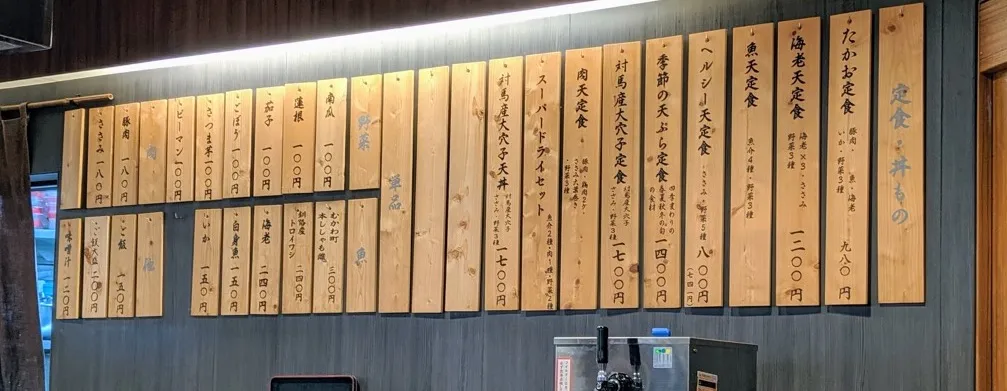 定食・丼もの
たかお定食
豚肉・魚・海老
いか・野菜3種
九八〇円
海老天定食
海老×3・ささみ
野菜3種
一二〇〇円
魚天定食
魚介4種・野菜3種
ヘルシー天定食
ささみ・野菜5種
八〇〇円
(七四一円)
季節の天ぷら定食
四季変わりの
春夏秋冬の旬
の食材
一四〇〇円
対馬産大穴子定食
対馬産大穴子
ささみ・野菜3種
一七〇〇円
肉天定食
豚肉・鶏肉2ケ
ささみ大葉巻き
・野菜3種
スーパードライセット
魚介2種・肉1種・野菜2種
対馬産大穴子天丼
対馬産大穴子
ささみ・野菜3種
一七〇〇円
単品
野菜
南瓜 一〇〇円
蓮根 一〇〇円
茄子 一〇〇円
ごぼう 一〇〇円
さつま芋 一〇〇円
ピーマン 一〇〇円
肉
豚肉 一八〇円
ささみ 一八〇円
魚
むかわ町
本ししゃも
三〇〇円
釧路産
トロイワシ
二四〇円
海老 二四〇円
白身魚 一五〇円
いか 一五〇円
他
ご飯 一五〇円
ご飯大盛 二〇〇円
味噌汁 一二〇円